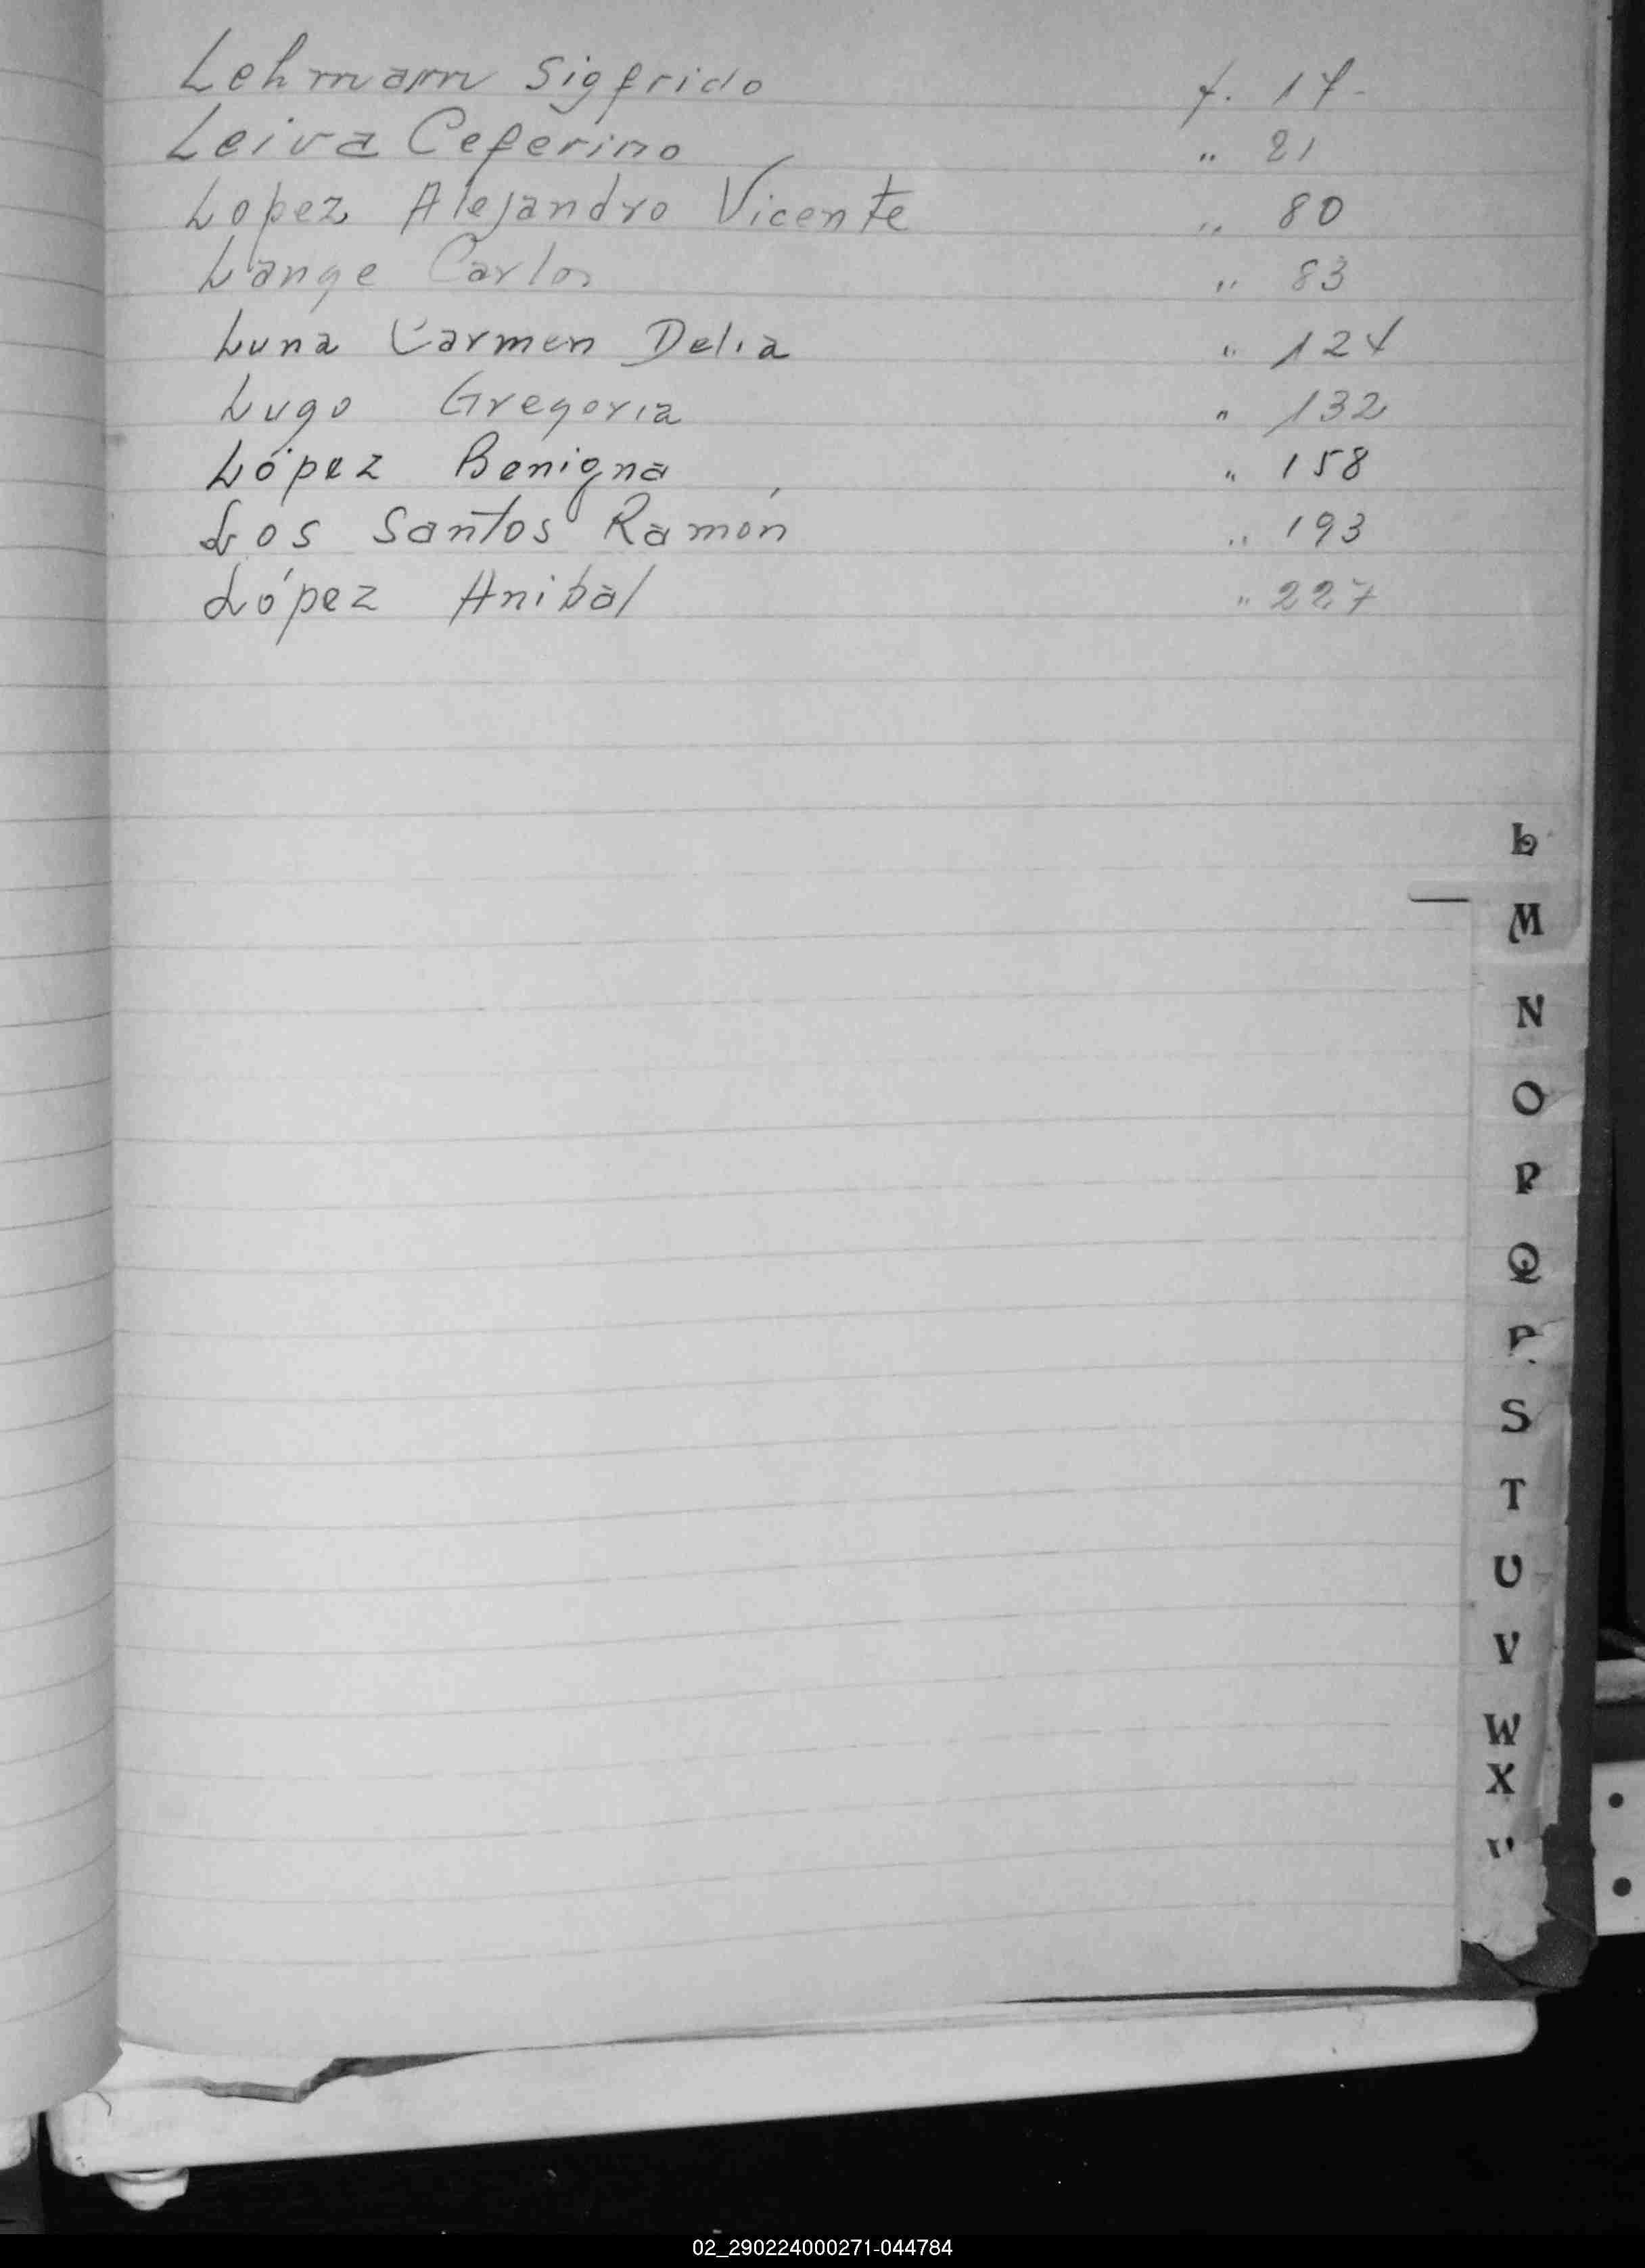 Lehmann Sigfrido f. 17-
Leiva Ceferino " 21
Lopez Alejandro Vicente " 80
Lange Carlos " 83
Luna Carmen Delia " 124
Lugo Gregoria " 132
López Benigna " 158
Los Santos Ramón " 193
López Anibal " 227
L
M
N
O
P
Q
R
S
T
U
V
W
X
02_290224000271-044784